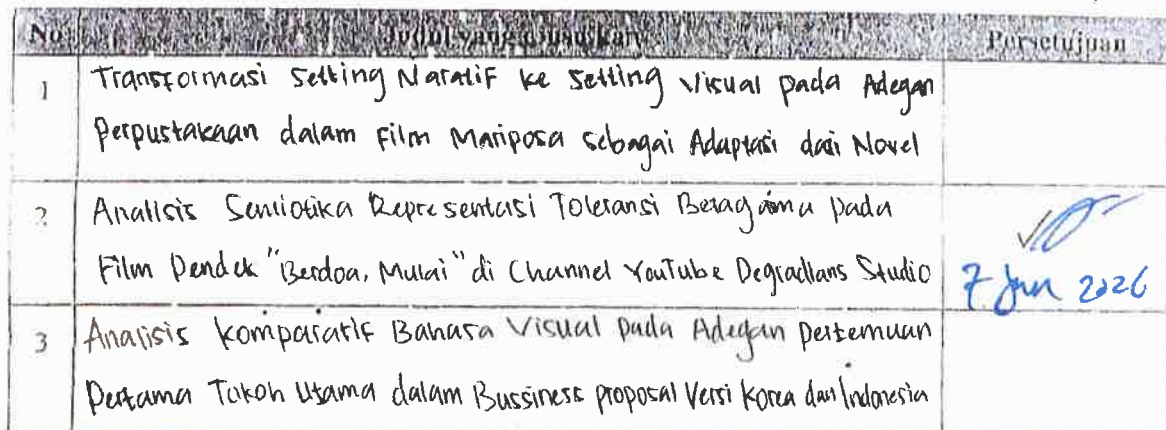 No Judul yang diusulkan Persetujuan
1 Transformasi Setting Naratif ke Setting Visual pada Adegan
Perpustakaan dalam Film Mariposa sebagai Adaptasi dari Novel
2 Analisis Semiotika Representasi Toleransi Beragama pada
Film Pendek "Berdoa, Mulai" di Channel YouTube Degradians Studio
7 Jun 2026
3 Analisis Komparatif Bahasa Visual pada Adegan pertemuan
Pertama Tokoh Utama dalam Bussiness proposal Versi Korea dan Indonesia